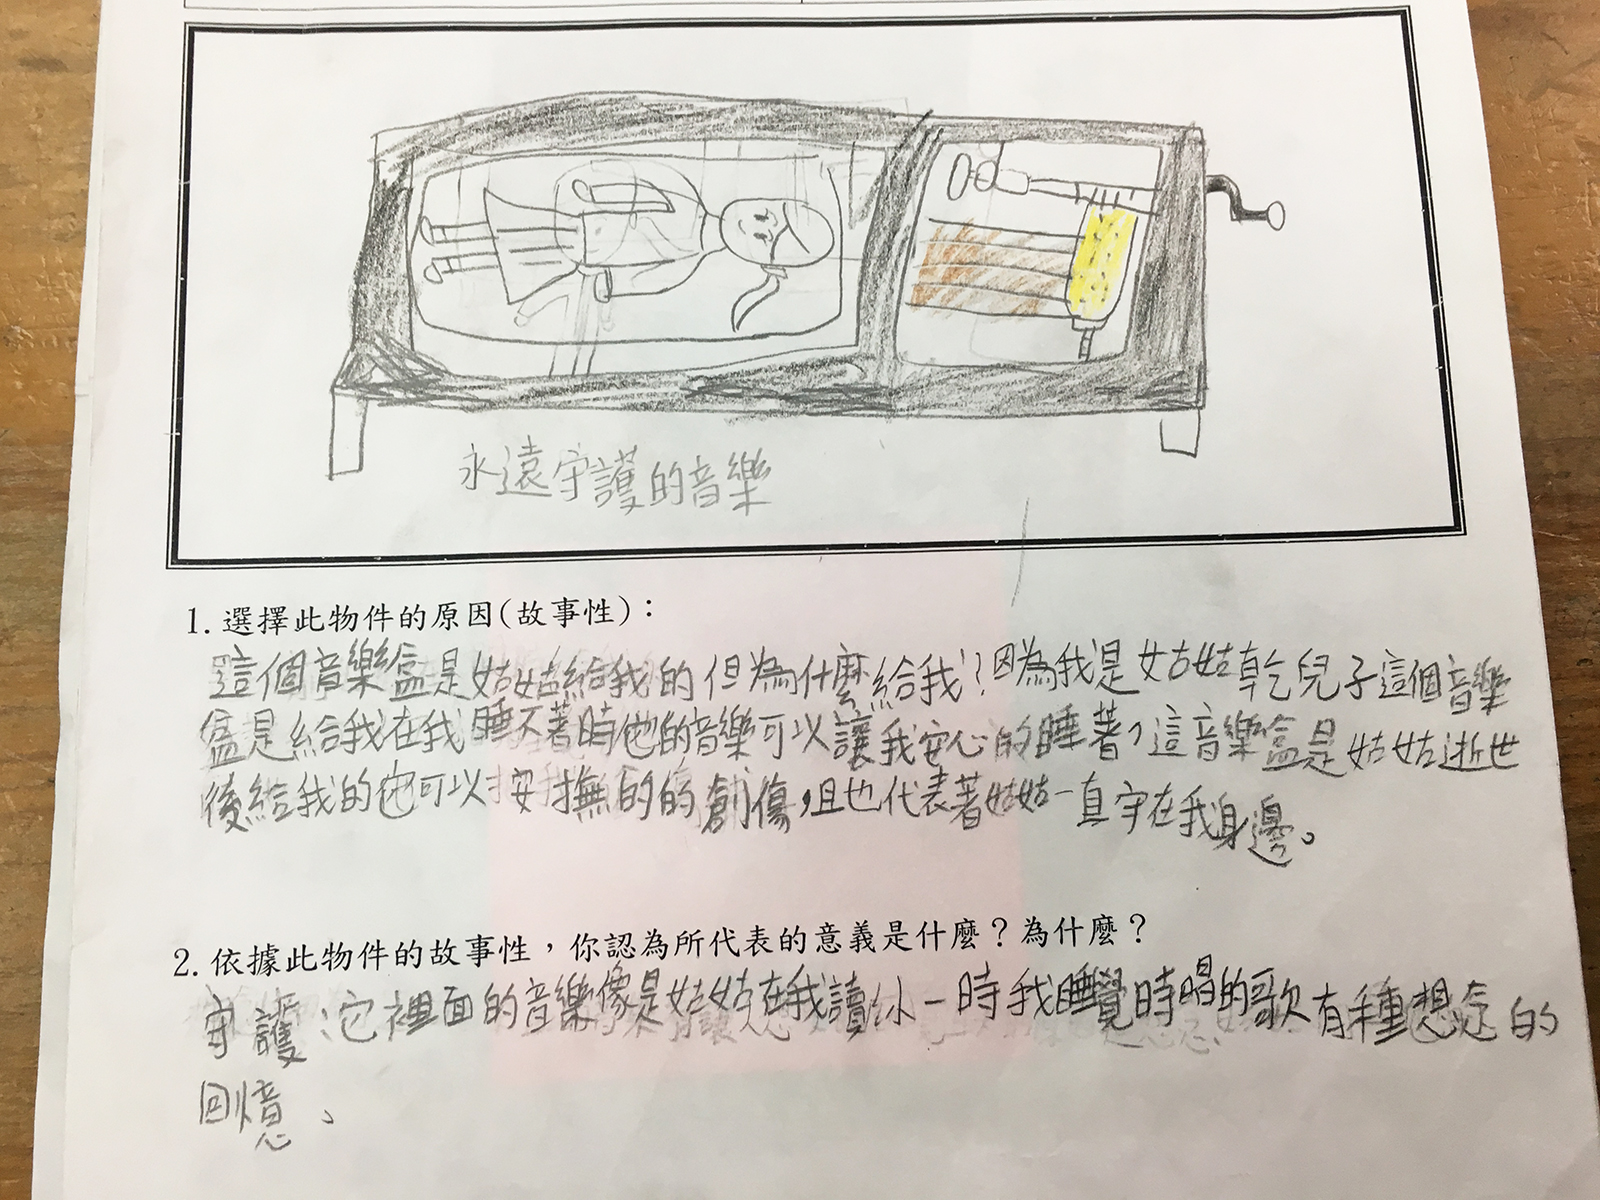 永遠守護的音樂
1. 選擇此物件的原因(故事性)：
這個音樂盒是姑姑給我的但為什麼給我?因為我是姑姑乾兒子這個音樂
盒是給我在我睡不著時他的音樂可以讓我安心的睡著,這音樂盒是姑姑逝世
後給我的也可以按撫的的創傷,且也代表著姑姑一直守在我身邊。
2. 依據此物件的故事性，你認為所代表的意義是什麼？為什麼？
守護:它裡面的音樂像是姑姑在我讀小一時我睡覺時唱的歌有種想念的
回憶、